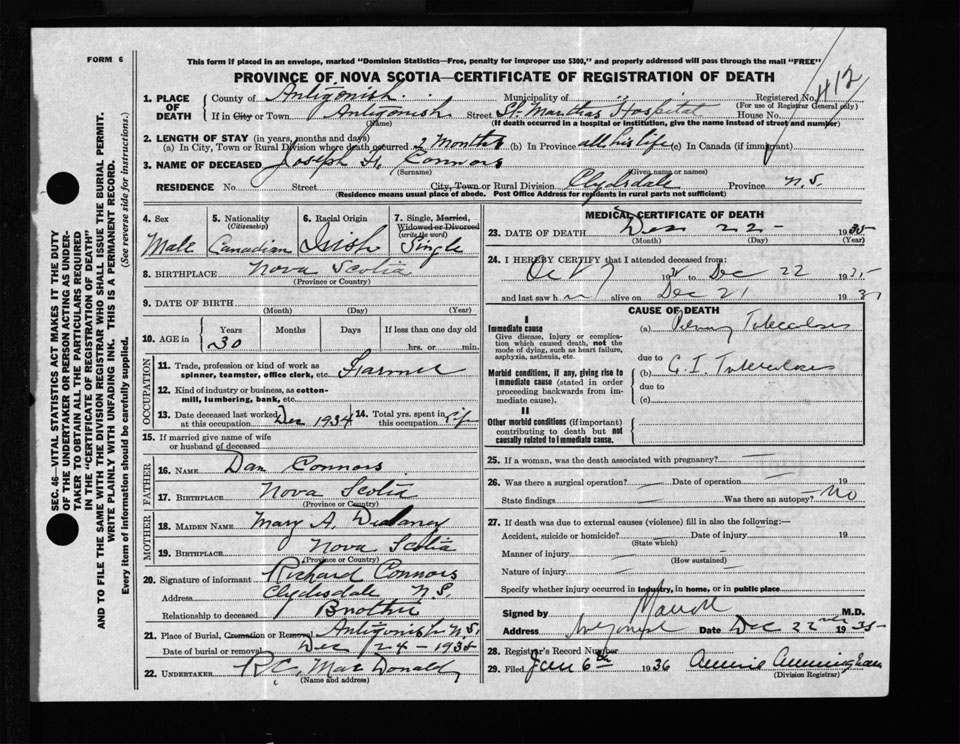 FORM 6
This form if placed in an envelope, marked "Dominion Statistics—Free, penalty for improper use $300," and properly addressed will pass through the mail "FREE"
PROVINCE OF NOVA SCOTIA—CERTIFICATE OF REGISTRATION OF DEATH
1. PLACE OF DEATH
County of Antigonish Municipality of Registered No. 412
(For use of Registrar General only)
If in City or Town Antigonish Street St. Martha's Hospital House No.
(Name) (If death occurred in a hospital or institution, give the name instead of street and number)
2. LENGTH OF STAY (in years, months and days)
(a) In City, Town or Rural Division where death occurred 2 Months (b) In Province all his life (c) In Canada (if immigrant)
3. NAME OF DECEASED Joseph Connors
(Surname) (Given name or names)
RESIDENCE No Street City, Town or Rural Division Clydsdale Province N.S.
(Residence means usual place of abode. Post Office Address for residents of rural parts not sufficient)
4. Sex Male
5. Nationality (Citizenship) Canadian
6. Racial Origin Irish
7. Single, Married, Widowed or Divorced (write the word) Single
8. BIRTHPLACE Nova Scotia
(Province or Country)
9. DATE OF BIRTH
(Month) (Day) (Year)
10. AGE in Years Months Days If less than one day old
30 hrs. or min.
OCCUPATION
11. Trade, profession or kind of work as spinner, teamster, office clerk, etc. Farmer
12. Kind of industry or business, as cotton-mill, lumbering, bank, etc.
13. Date deceased last worked at this occupation Dec 1934 14. Total yrs. spent in this occupation Life
15. If married give name of wife or husband of deceased
FATHER
16. NAME Dan Connors
17. BIRTHPLACE Nova Scotia
(Province or Country)
MOTHER
18. MAIDEN NAME Mary A.
19. BIRTHPLACE Nova Scotia
(Province or Country)
20. Signature of informant Richard Connors
Address Clydesdale N.S.
Relationship to deceased Brother
21. Place of Burial, Cremation or Removal Antigonish N.S.
Date of burial or removal Dec 24 - 1935
22. UNDERTAKER R.C. MacDonald
(Name and address)
MEDICAL CERTIFICATE OF DEATH
23. DATE OF DEATH Dec 22 - 1935
(Month) (Day) (Year)
24. I HEREBY CERTIFY that I attended deceased from:
Oct 19 to Dec 22 1935
and last saw h alive on Dec 21 19
CAUSE OF DEATH
I
Immediate cause
Give disease, injury or complication which caused death, not the mode of dying, such as heart failure, asphyxia, asthenia, etc.
(a) Tuberculosis
due to
Morbid conditions, if any, giving rise to immediate cause (stated in order proceeding backwards from immediate cause).
(b) G.I. Tuberculosis
due to
(c)
II
Other morbid conditions (if important) contributing to death but not causally related to immediate cause.
25. If a woman, was the death associated with pregnancy? —
26. Was there a surgical operation? — Date of operation — 19
State findings — Was there an autopsy? No
27. If death was due to external causes (violence) fill in also the following:—
Accident, suicide or homicide? Date of injury 19
(State which)
Manner of injury
(How sustained)
Nature of injury
Specify whether injury occurred in industry, in home, or in public place
Signed by M.D.
Address Antigonish Date Dec 22nd 1935
28. Registrar's Record Number
29. Filed Jan 6th 1936 Annie Cunningham
(Division Registrar)
SEC. 46—VITAL STATISTICS ACT MAKES IT THE DUTY
OF THE UNDERTAKER OR PERSON ACTING AS UNDER-
TAKER TO OBTAIN ALL THE PARTICULARS REQUIRED
IN THE "CERTIFICATE OF REGISTRATION OF DEATH"
AND TO FILE THE SAME WITH THE DIVISION REGISTRAR WHO SHALL ISSUE THE BURIAL PERMIT.
WRITE PLAINLY WITH UNFADING INK. THIS IS A PERMANENT RECORD.
Every item of information should be carefully supplied. (See reverse side for instructions.)